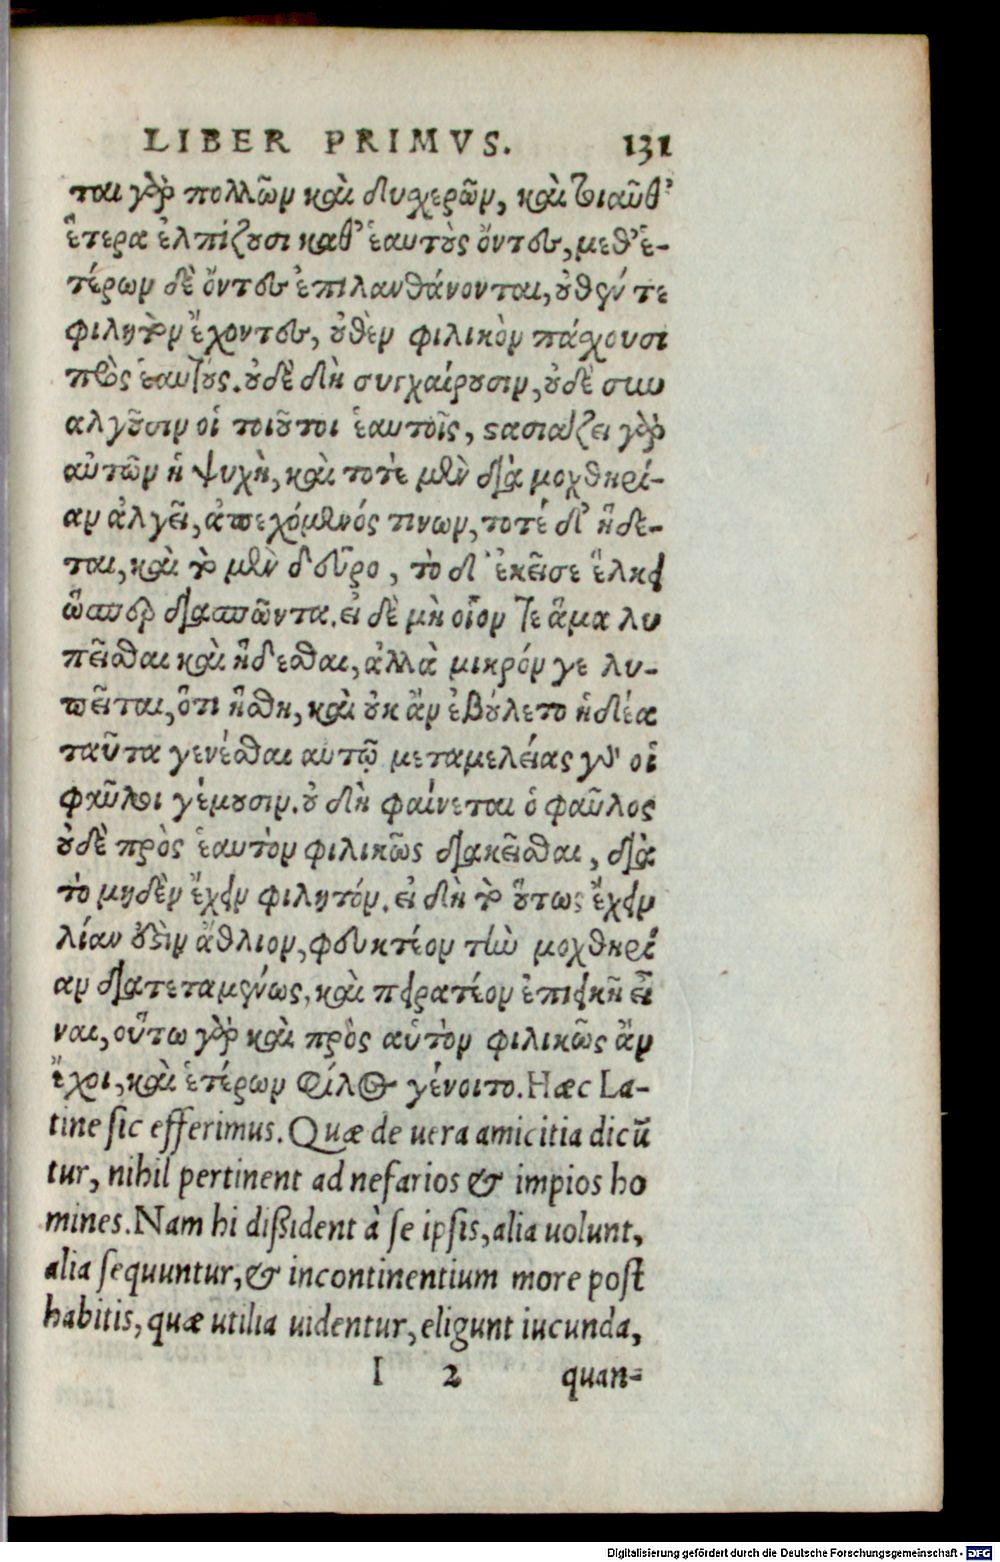 LIBER PRIMVS. 131
ται γὰρ πολλῶν καὶ δυχερῶν, καὶ τοιαῦθ’
ἕτερα ἐλπίζουσι καθ’ ἑαυτοὺς ὄντες, μεθ’ ἑ-
τέρων δὲ ὄντες ἐπιλανθάνονται, οὐθέν τε
φιλητὸν ἔχοντες, οὐθὲν φιλικὸν πάσχουσι
πρὸς ἑαυτούς. οὐδὲ δὴ συγχαίρουσιν, οὐδὲ συν
αλγοῦσιν οἱ τοιοῦτοι ἑαυτοῖς, στασιάζει γὰρ
αὐτῶν ἡ ψυχὴ, καὶ τοτὲ μὲν διὰ μοχθηρί-
αν ἀλγεῖ, ἀπεχόμενός τινων, τοτέ δ’ ἥδε-
ται, καὶ τὸ μὲν δεῦρο, τὸ δ’ ἐκεῖσε ἕλκει
ὥσπερ διασπῶντα. εἰ δὲ μὴ οἷον τε ἅμα λυ
πεῖσθαι καὶ ἥδεσθαι, ἀλλὰ μικρόν γε λυ-
πεῖται, ὅτι ἥσθη, καὶ οὐκ ἂν ἐβούλετο ἡδέα
ταῦτα γενέσθαι αυτῷ μεταμελείας γὰρ οἱ
φαῦλοι γέμουσιν. οὐ δὴ φαίνεται ὁ φαῦλος
οὐδὲ πρὸς ἑαυτὸν φιλικῶς διακεῖσθαι, διὰ
τὸ μηδὲν ἔχειν φιλητόν. εἰ δὴ τὸ οὕτως ἔχειν
λίαν ἐστὶν ἄθλιον, φευκτέον τὴν μοχθηρί
αν διατεταμένως, καὶ πειρατέον ἐπιεικῆ εἶ
ναι, οὕτω γὰρ καὶ πρὸς αὑτὸν φιλικῶς ἂν
ἔχοι, καὶ ἑτέρων φίλος γένοιτο. Hæc La-
tine sic efferimus. Quæ de uera amicitia dicũ
tur, nihil pertinent ad nefarios & impios ho
mines. Nam hi dißident à se ipsis, alia uolunt,
alia sequuntur, & incontinentium more post
habitis, quæ utilia uidentur, eligunt iucunda,
I 2 quan-
Digitalisierung gefördert durch die Deutsche Forschungsgemeinschaft - DFG